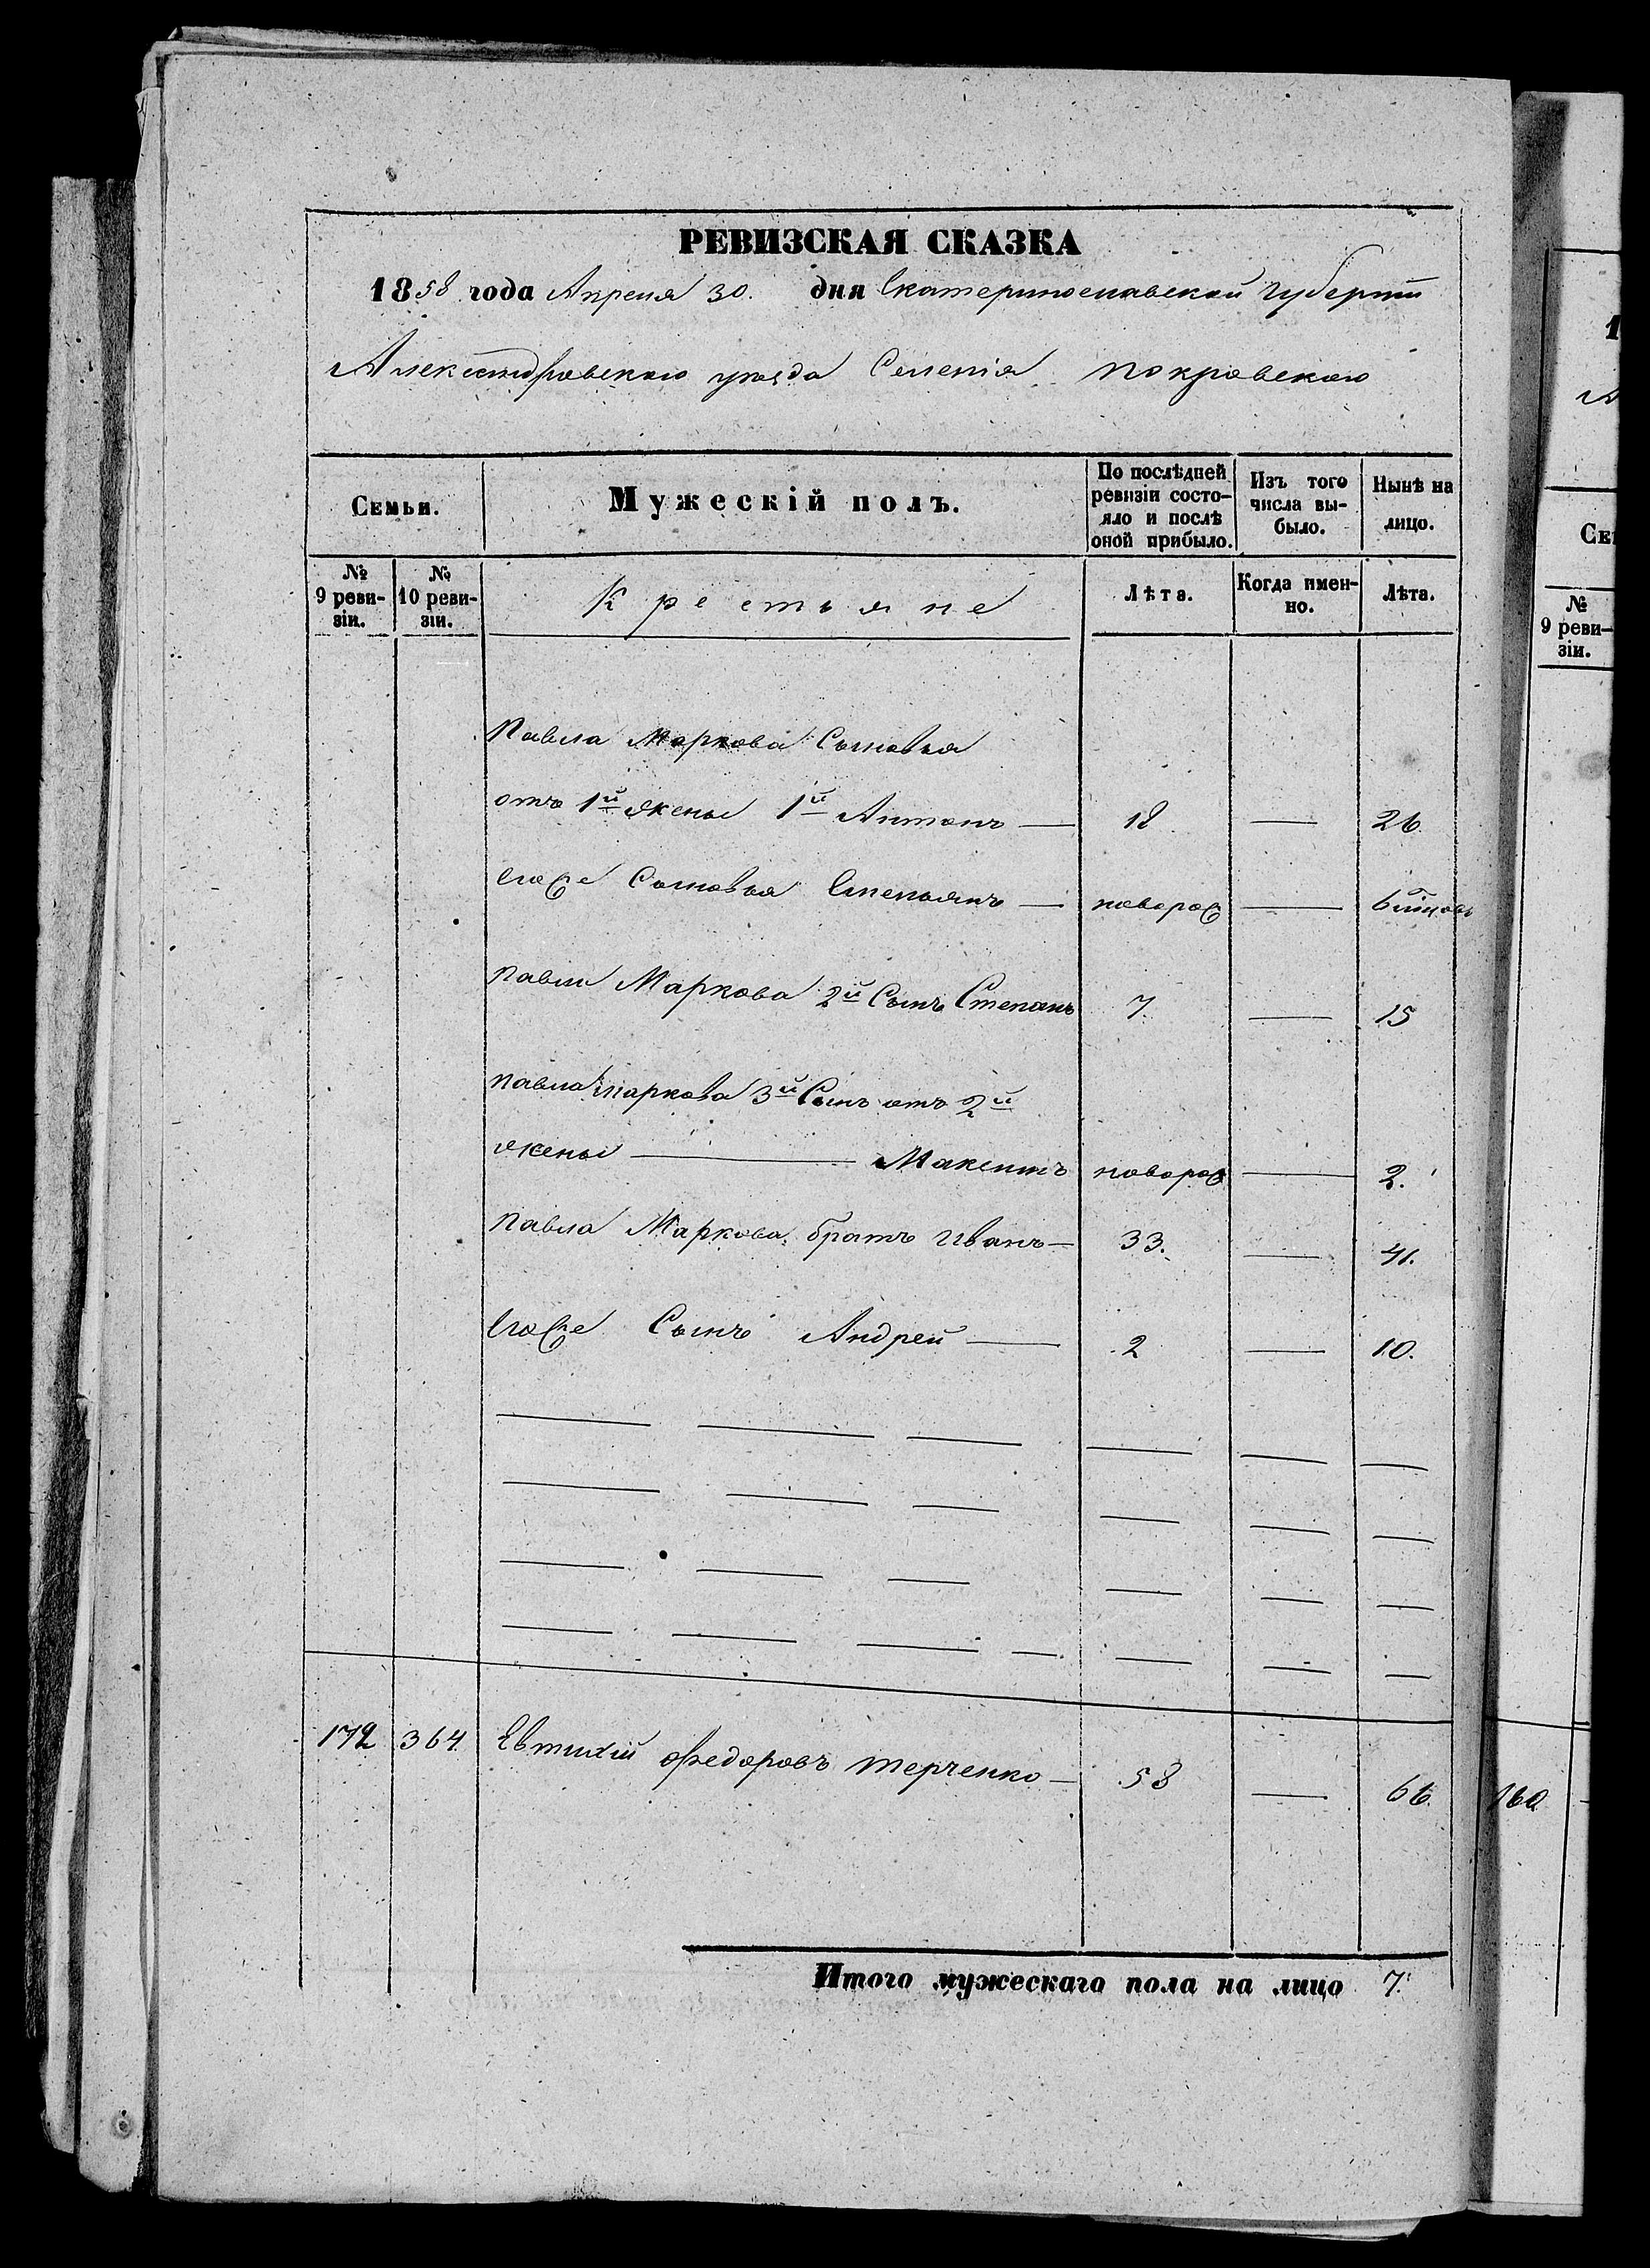 РЕВИЗСКАЯ СКАЗКА
1858 года Апреля 30. дня Екатеринославской Губернiи
Александровскаго уѣзда Селенiя покровскаго
Семьи. Мужескiй полъ. По послѣдней ревизiи состояло и послѣ оной прибыло. Изъ того числа выбыло. Нынѣ на лицо.
№ 9 ревизiи. № 10 ревизiи. Крестьяне Лѣта. Когда именно. Лѣта.
Павла Маркова Сыновья
отъ 1й жены 1й Антонъ — 18 — 26.
Егоже Сыновья — новорож —
павла Маркова 2й Сынъ Степанъ 7. — 15
павла Маркова 3й Сынъ отъ 2й
жены — новорож — 2.
павла Маркова братъ Иванъ — 33. — 41.
Егоже Сынъ Андрей — 2 — 10.
172 364 Евтихiй Федоровъ Терченко — 58 — 66.
Итого мужескаго пола на лицо 7.
1
Се
№
9 реви-
зiи.
160